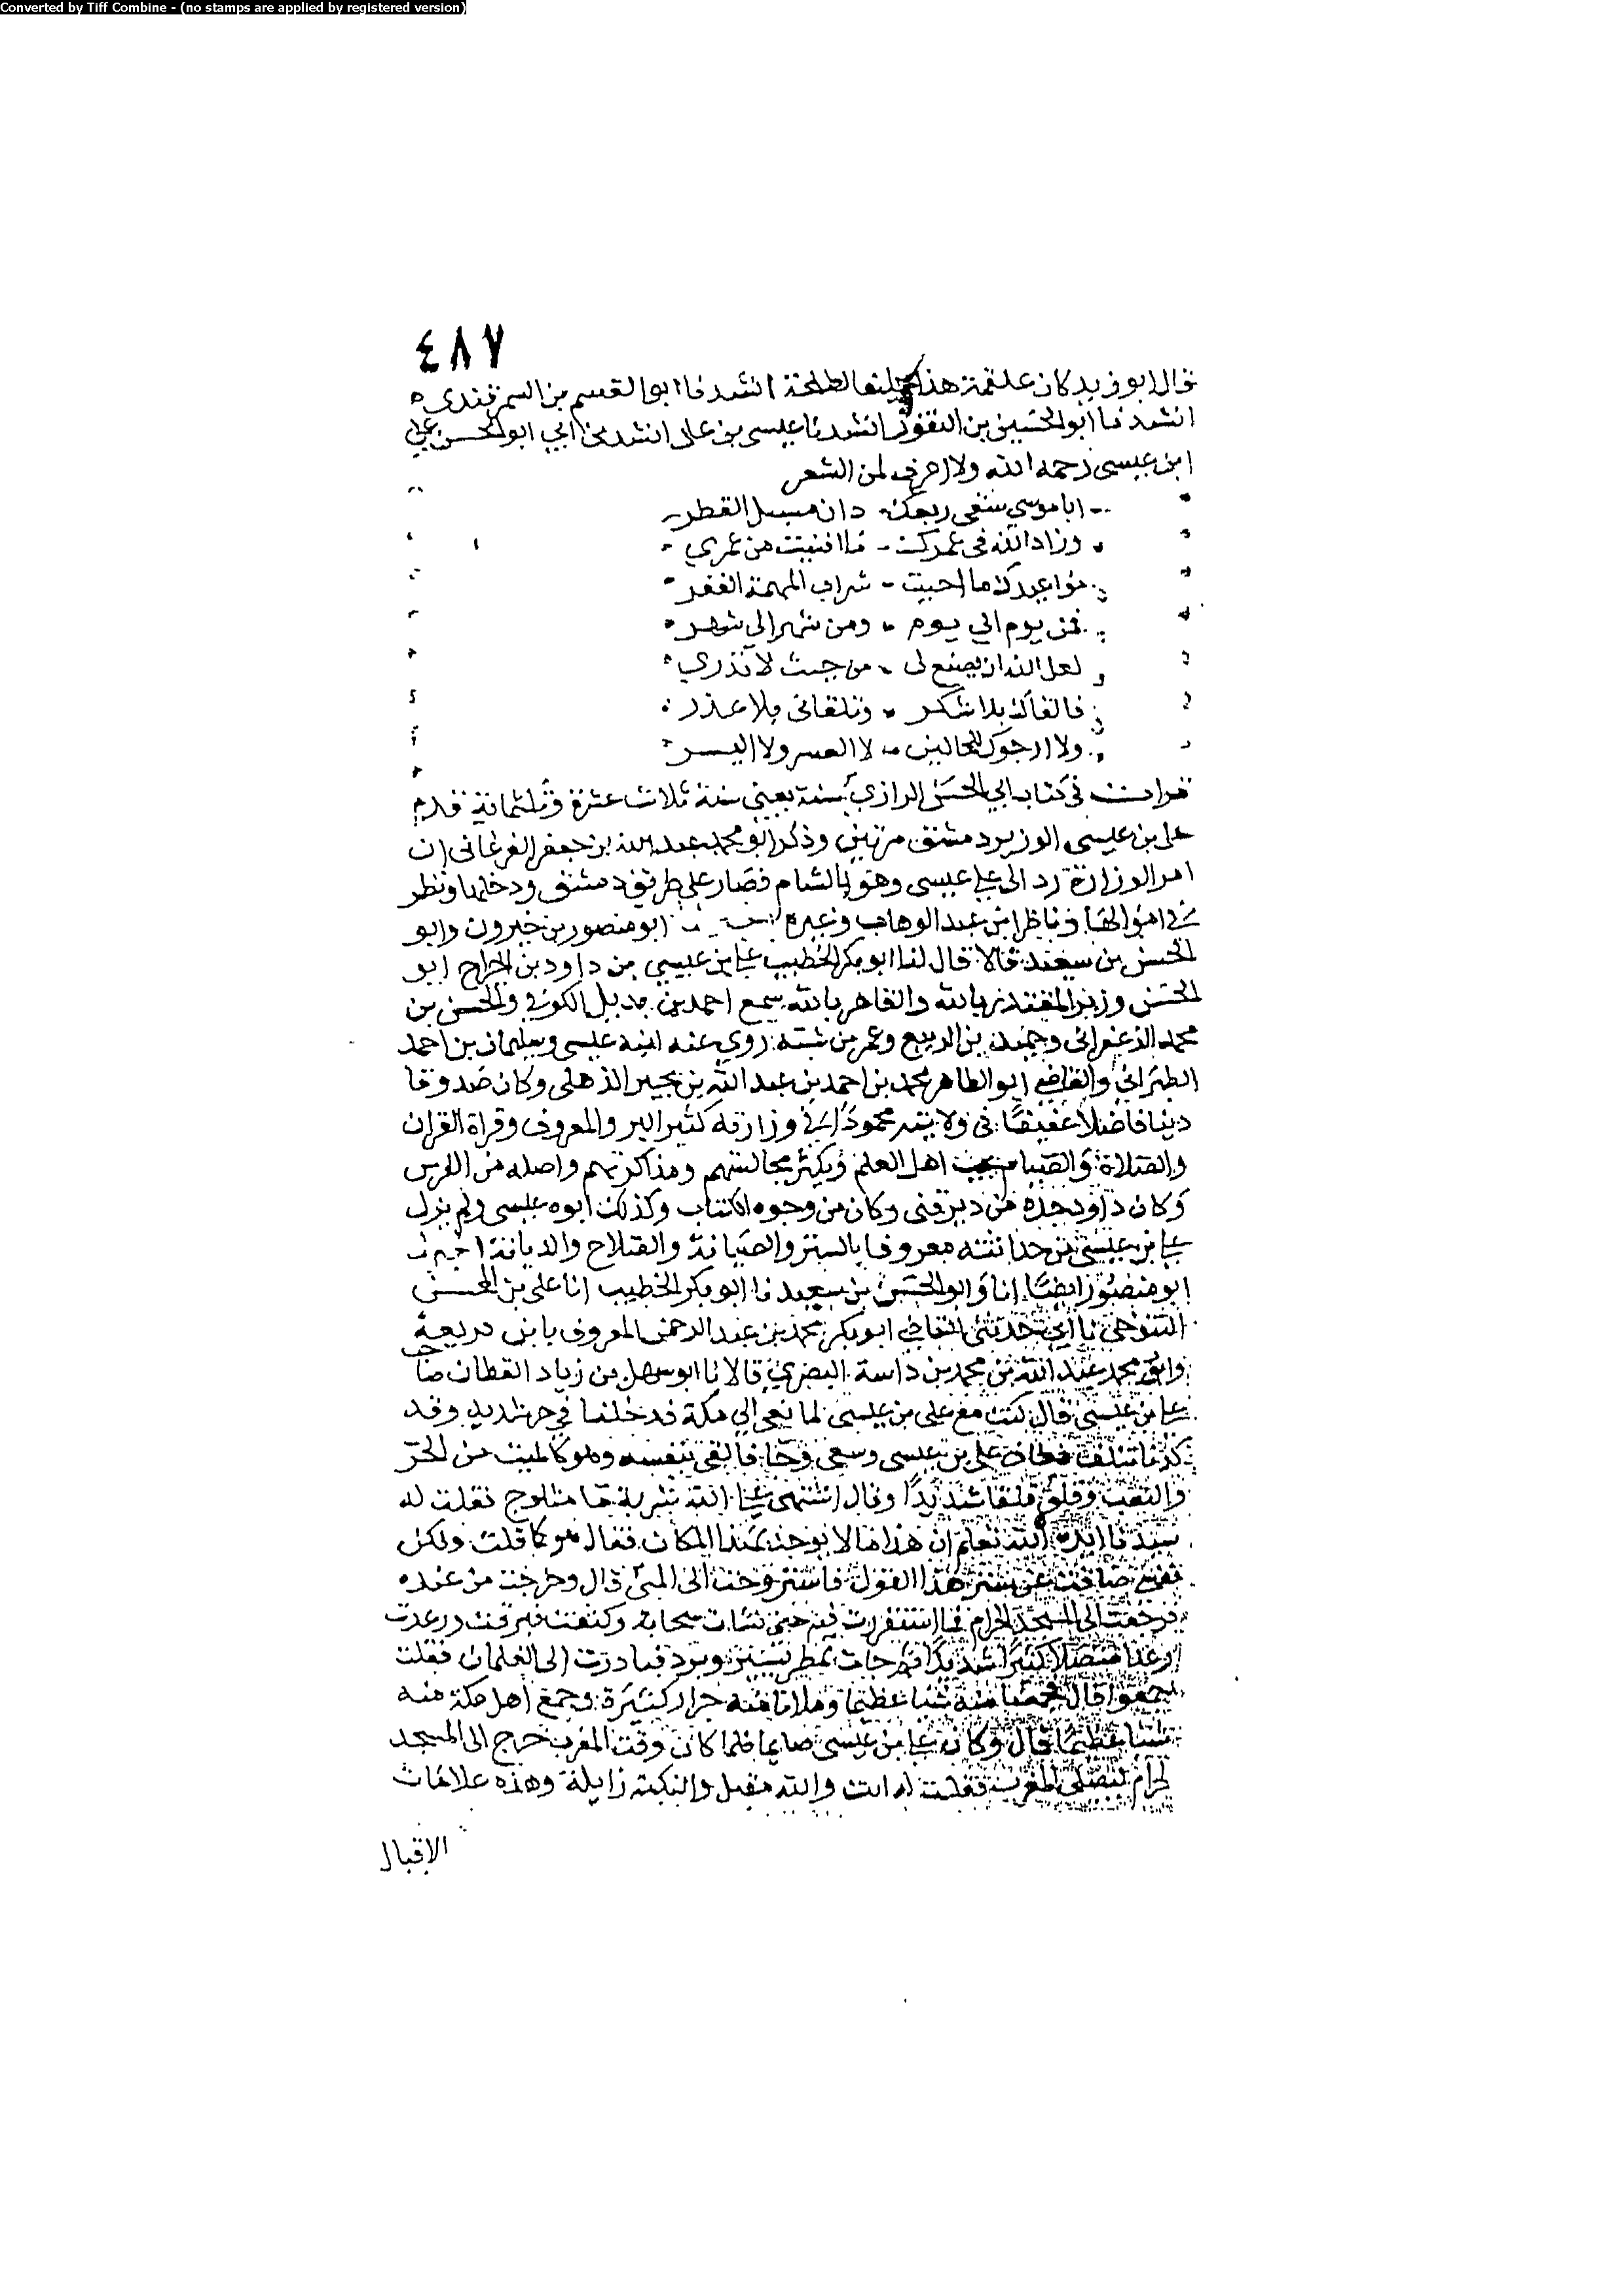 Converted by Tiff Combine - (no stamps are applied by registered version)
٤٨٧
قال ابو زيد كان علقمة هذا لطلحة انشدنا ابو القسم بن السمرقندى
انشدنا ابو الحسين بن النقور انشدنا عيسى بن على انشدنى ابي ابو الحسن علي
ابن عيسى رحمه الله ولا اعرف لمن الشعر
ابا موسي سقى ربعك دان مسبل القطر
وزاد الله فى عمرك ما افنيت من عمري
مواعيدك ما احييت سراب المهمة القفر
فمن يوم الي يوم ومن شهر الى شهر
لعل الله ان يصنع لى من حيث لا تدري
فالقاك بلا شكر وتلقانى بلا عذر
ولا ارجوك للحالين لا العسر ولا اليسر
قرات في كتاب ابي الحسن الرازي سنة يعني سنة ثلاث عشرة وثلثمائة قدم
على بن عيسى الوزير دمشق مرتين وذكر ابو محمد عبد الله بن جعفر الفرغانى ان
امر الوزارة رد الى علي عيسى وهو بالشام فصار على طريق دمشق ودخلها ونظر
في اموالها وناظر ابن عبد الوهاب وغيره ابو منصور بن خيرون وابو
الحسن بن سعيد قالا قال لنا ابو بكر الخطيب علي بن عيسي بن داود بن الجراح ابو
الحسن وزير المقتدر بالله والقاهر بالله سمع احمد بن بديل الكوفي والحسن بن
محمد الزعفرانى وحميد بن الربيع وعمر بن شبه روي عنه ابنه عيسى وسليمان بن احمد
الطبراني والقاضي ابو الطاهر محمد بن احمد بن عبد الله بن بجير الذهلى وكان صدوقا
دينا فاضلا عفيفا فى ولايته محمودا في وزارته كثير البر والمعروف وقراة القران
والصلاة والصيام يحب اهل العلم ويكثر مجالستهم ومذاكرتهم واصله من الفرس
وكان داود جده من دير قنى وكان من وجوه الكتاب وكذلك ابوه عيسى ولم يزل
علي بن عيسى من حداثته معروفا بالستر والصيانة والصلاح والديانة
ابو منصور ايضا انا وابو الحسن بن سعيد نا ابو بكر الخطيب انا على بن المحسن
التنوخي نا ابي حدثنى القاضي ابو بكر محمد بن عبد الرحمن المعروف بابن قريعة
وابو محمد عبد الله بن محمد بن داسة البصري قالا نا ابو سهل بن زياد القطان صاحب
علي بن عيسى قال كنت مع على بن عيسى لما نعى الى مكة فدخلنا في حر شديد وقد
كدنا نتلف فطاف على بن عيسى وسعى وجا فالقى بنفسه وهو كالميت من الحر
والتعب وقلق قلقا شديدا وقال اشتهى على الله شربة ما مثلوج فقلت له
سيدنا ايده الله تعلم ان هذا ما لا يوجد بهذا المكان فقال هو كما قلت ولكن
نفسي ضاقت عن ستر هذا القول فاستروحت الى المنى قال وخرجت من عنده
فرجعت الى المسجد الحرام فما استقررت فيه حتى نشات سحابة وكثفت فبرقت ورعدت
رعدا متصلا كثيرا شديدا ثم جات بمطر يسير وبرد فبادرت الى الغلمان فقلت
اجمعوا قال فجمعنا منه شيا عظيما وملانا منه جرار كثيرة وجمع اهل مكة منه
شيا عظيما قال وكان علي بن عيسى صايما فلما كان وقت المغرب خرج الى المسجد
الحرام ليصلى المغرب فقلت له انت والله مقبل والنكبة زايلة وهذه علامات
الاقبال